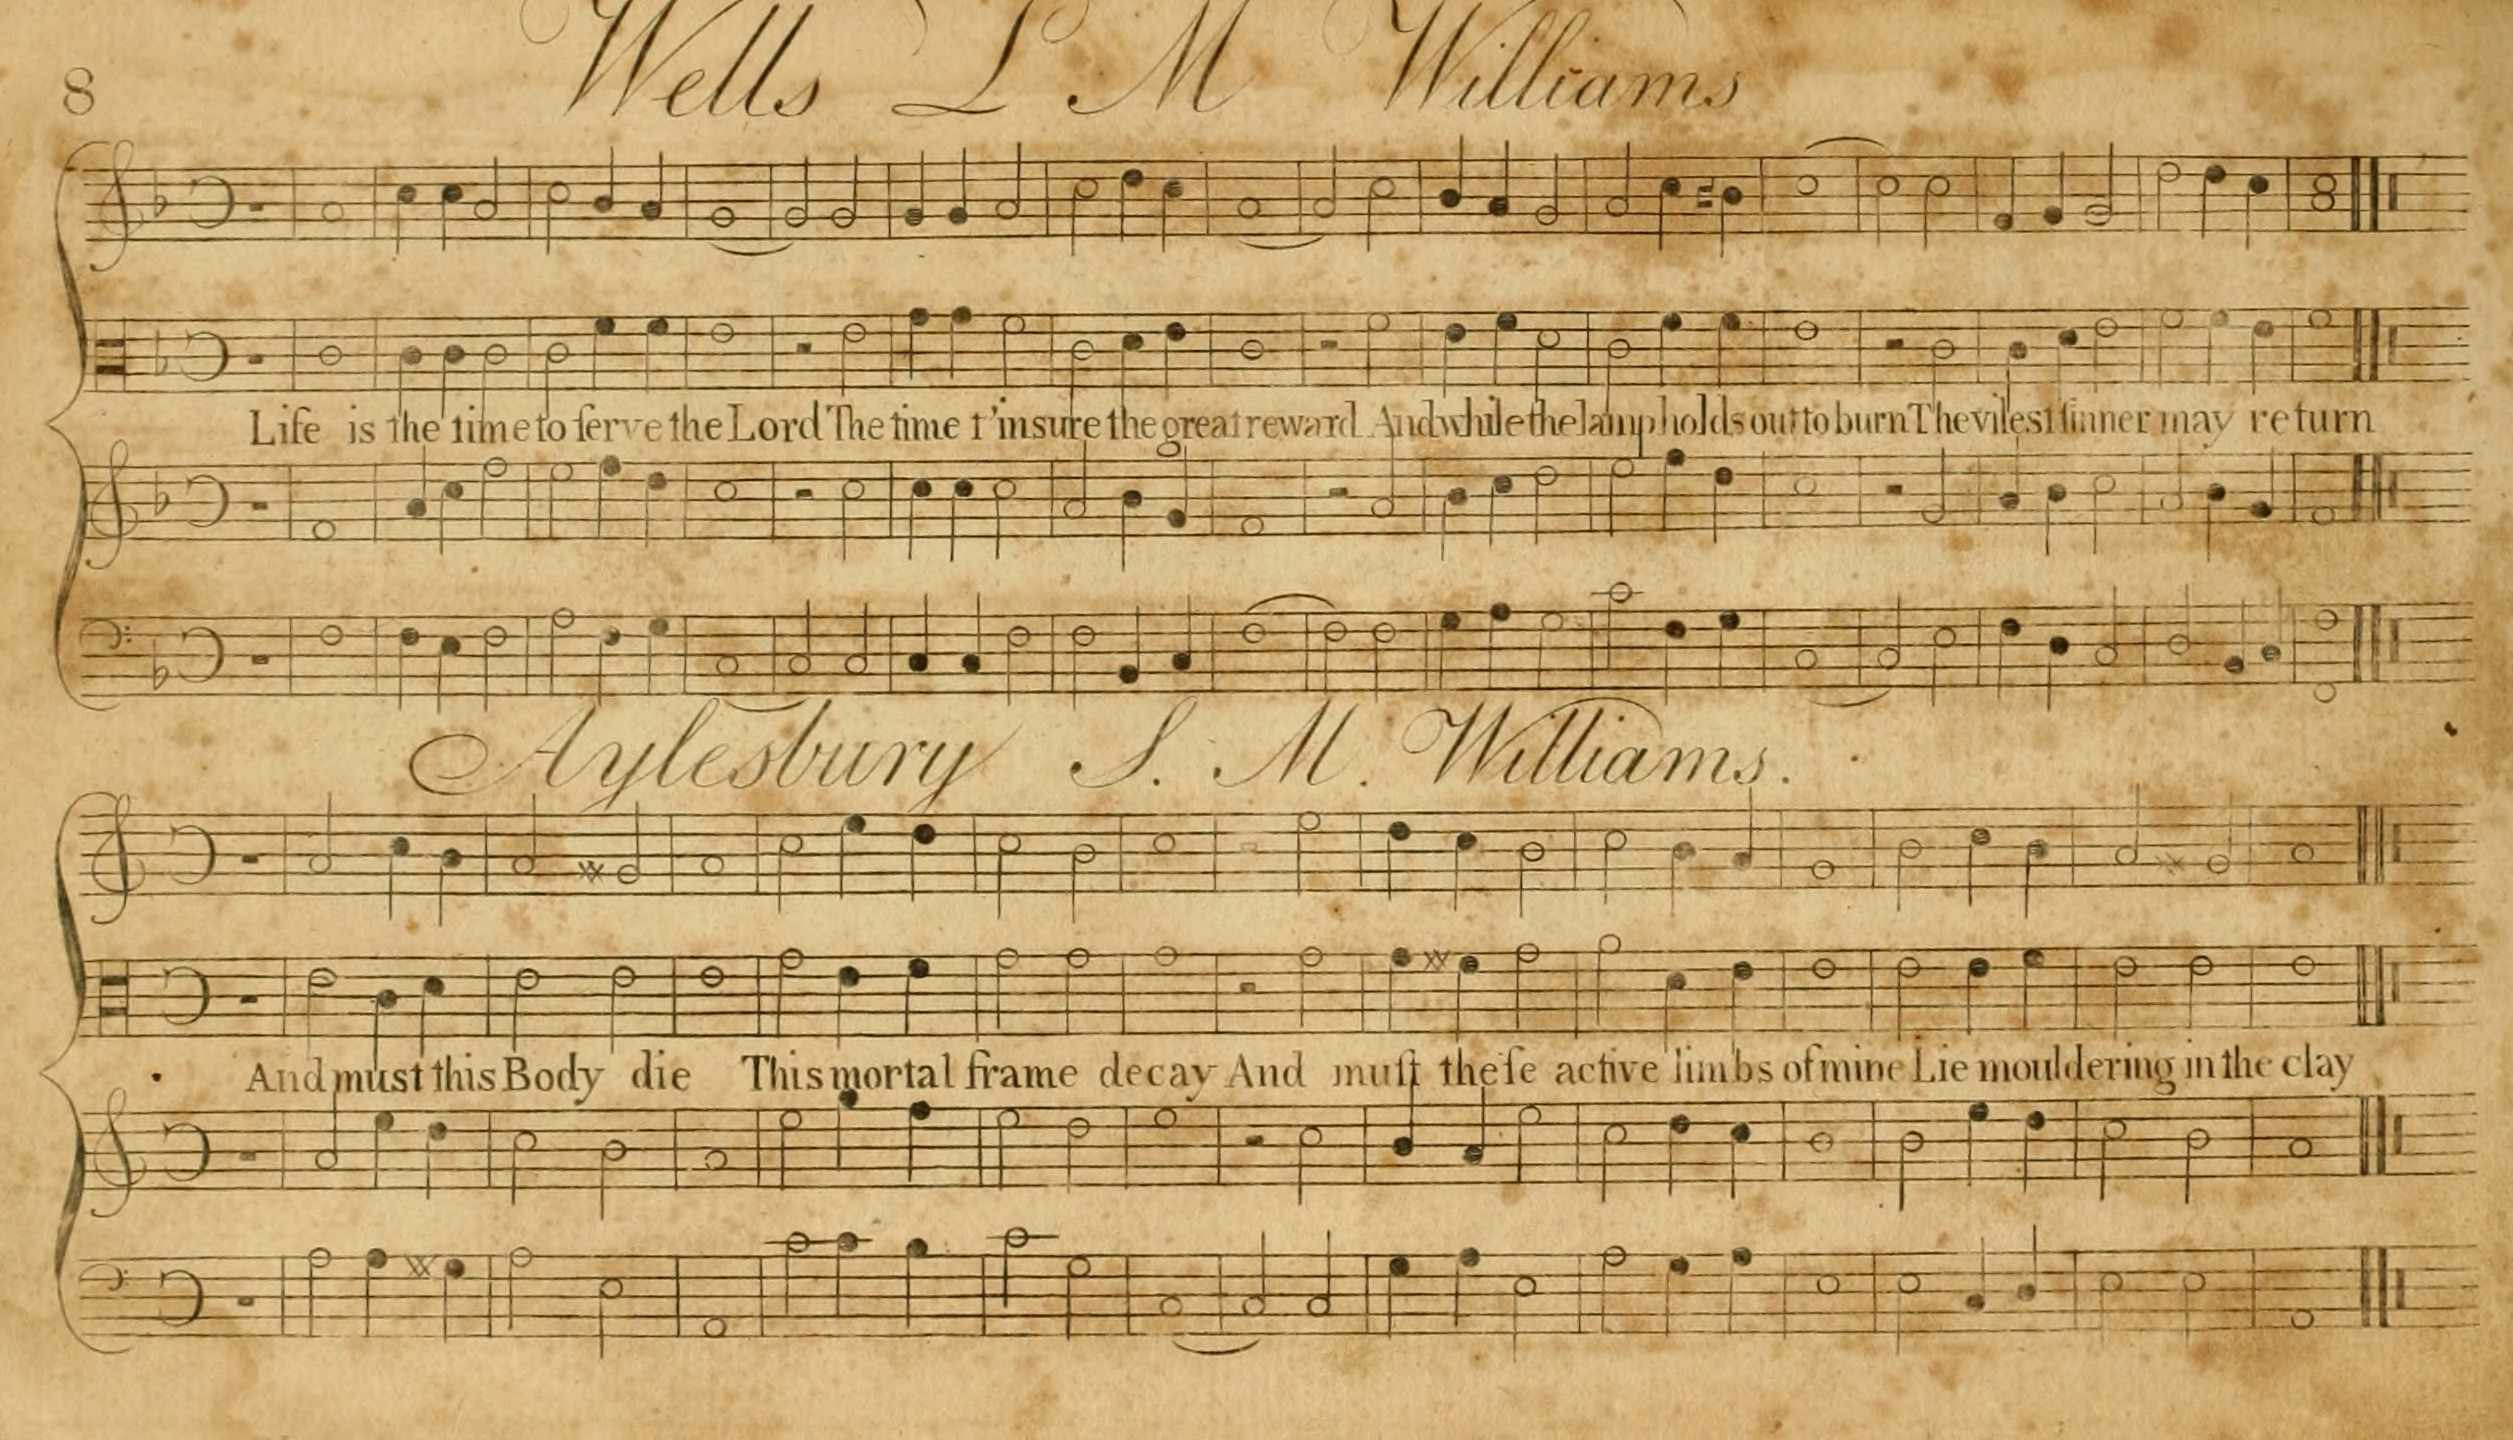 8
Wells L M Williams
Life is the time to ſerve the Lord The time t'insure the great reward And while the lamp holds out to burn The vilest ſinner may return
Aylesbury S. M. Williams.
And must this Body die This mortal frame decay And muſt theſe active limbs of mine Lie mouldering in the clay